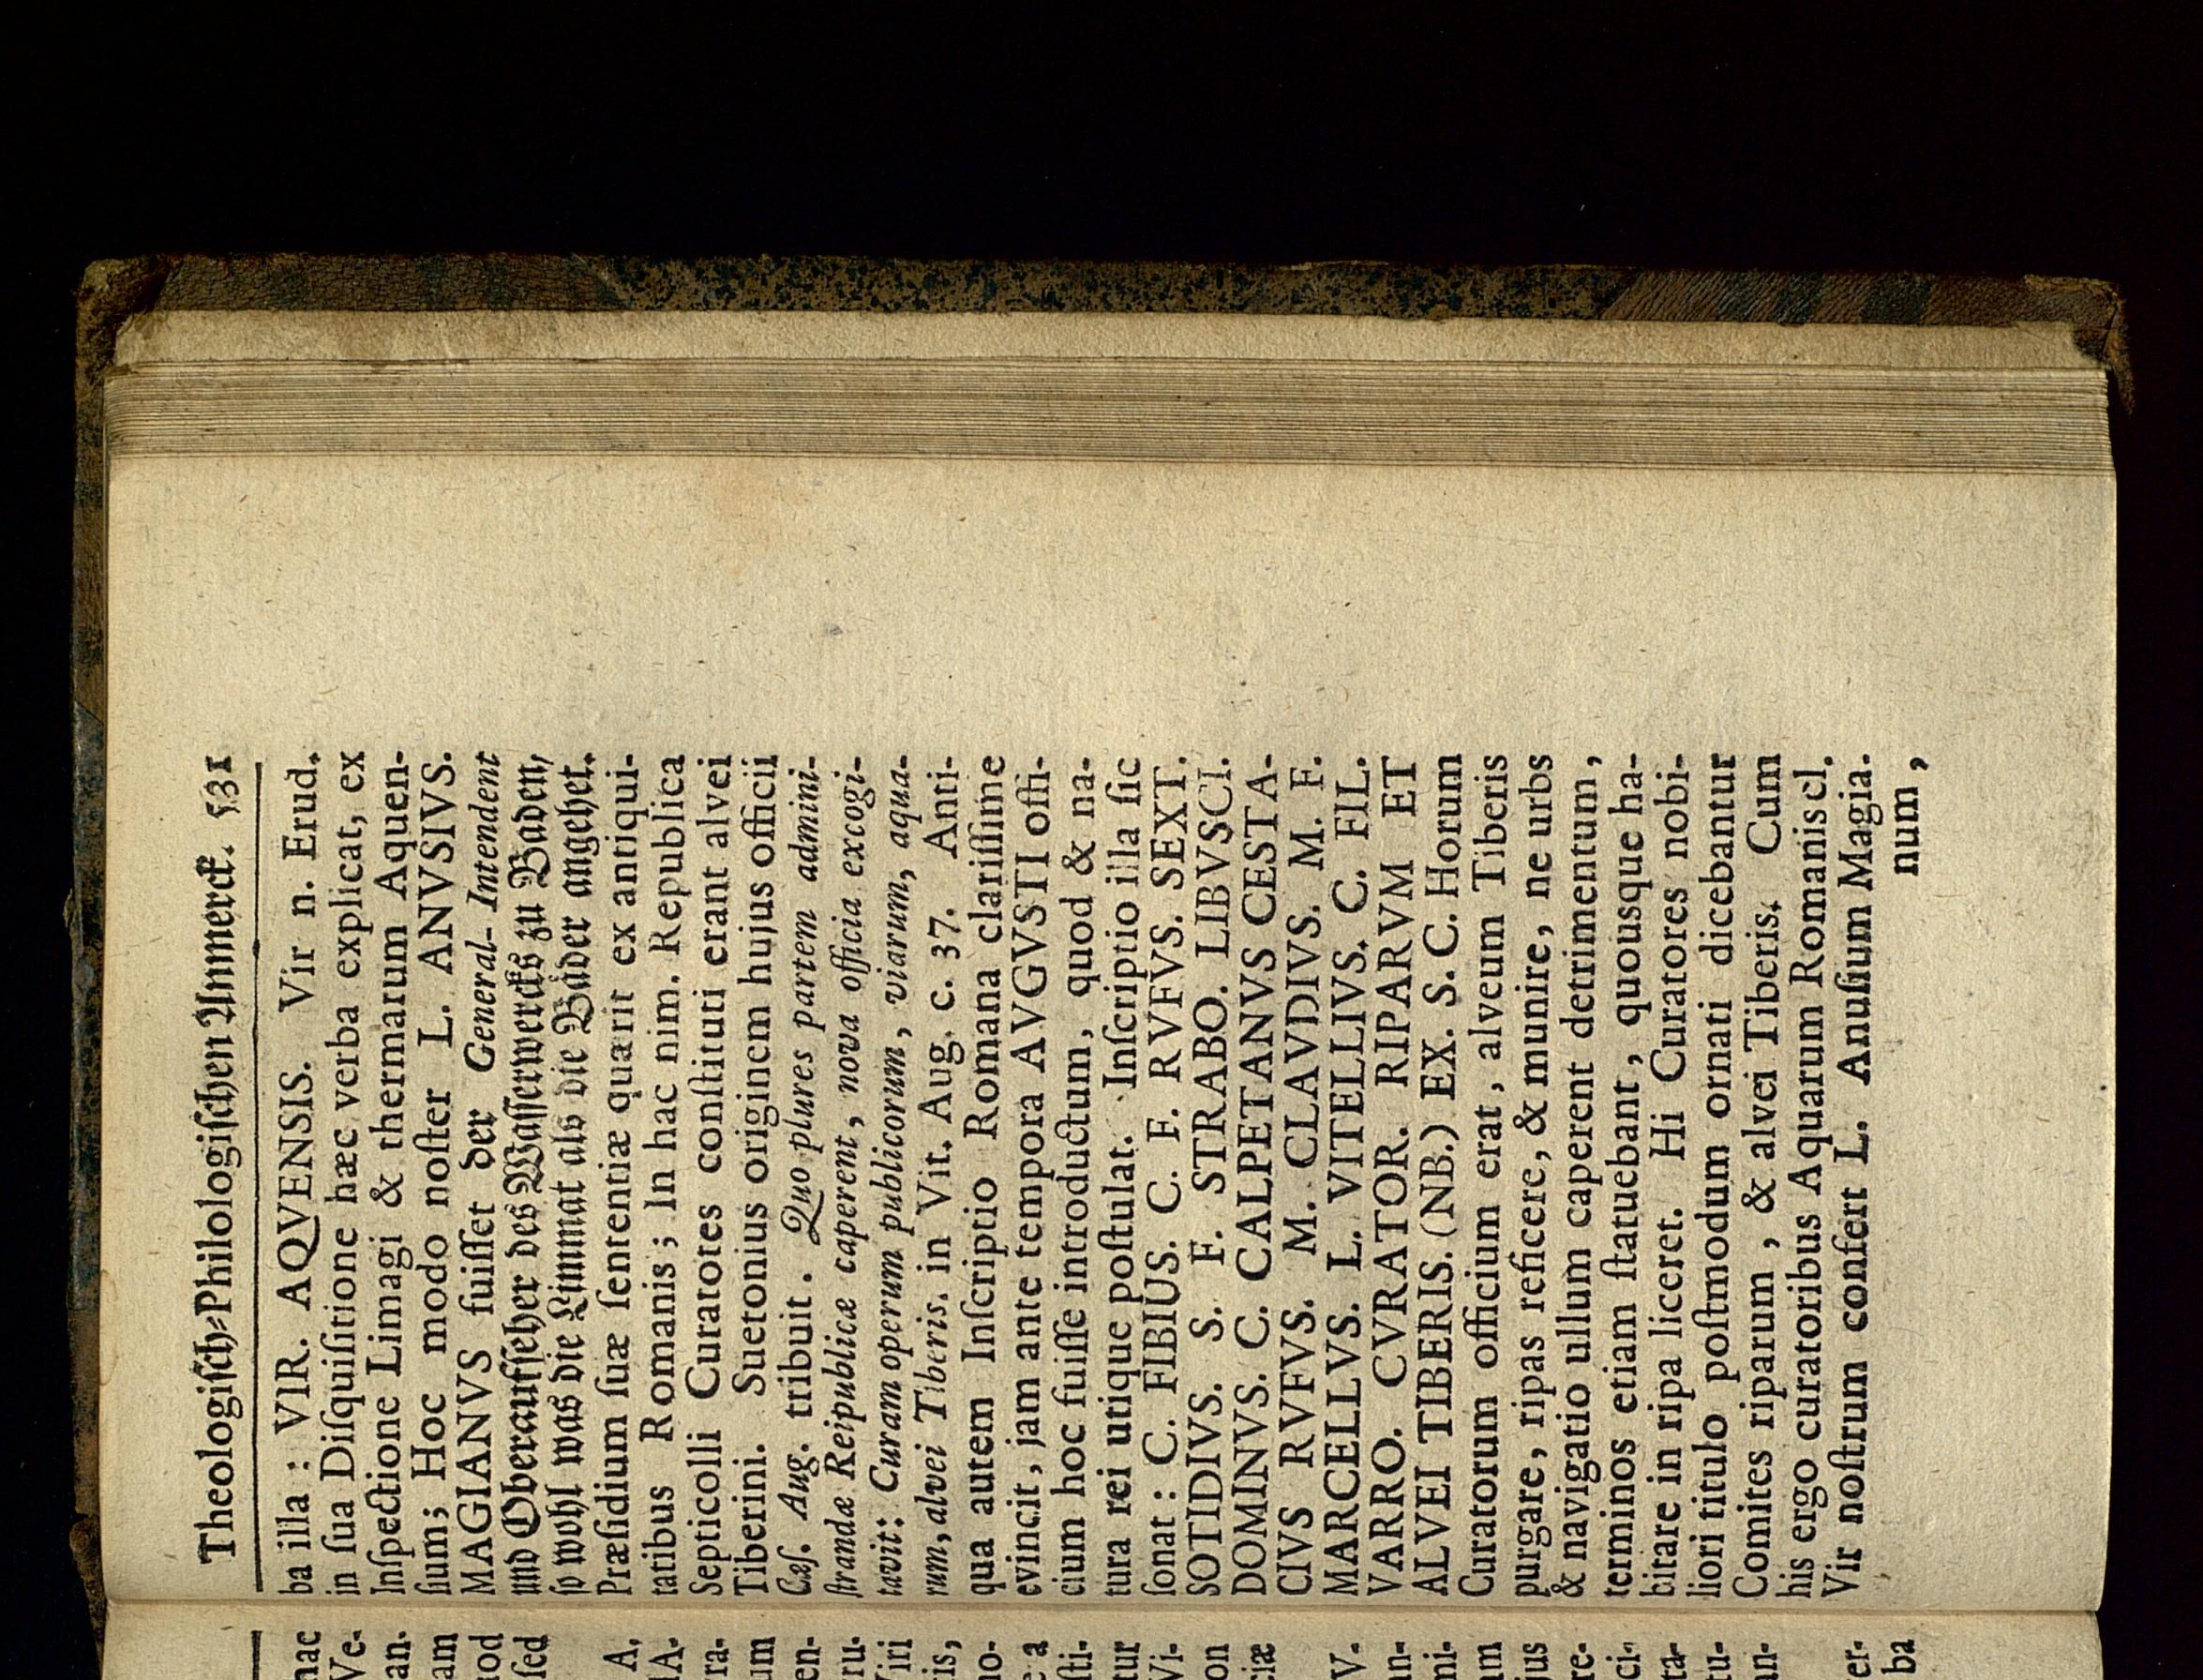 Theologiſch-Philologiſchen Anmerck. 531
ba illa : VIR. AQVENSIS. Vir n. Erud.
in ſua Diſquiſitione hæc verba explicat, ex
Inſpectione Limagi & thermarum Aquen-
ſium; Hoc modo noſter L. ANVSIVS.
MAGIANVS fuiſſet der General- Intendent
und Oberaufſeher des Waſſerwercks zu Baden,
ſo wohl was die Limmat als die Bäder angehet.
Præſidium ſuæ ſententiæ quærit ex antiqui-
tatibus Romanis; In hac nim. Republica
Septicolli Curatores conſtituti erant alvei
Tiberini. Suetonius originem hujus officii
Cæſ. Aug. tribuit. Quo plures partem admini-
ſtrandæ Reipublicæ caperent, nova officia excogi-
tavit: Curam operum publicorum, viarum, aqua-
rum, alvei Tiberis. in Vit. Aug. c. 37. Anti-
qua autem Inſcriptio Romana clariſſime
evincit, jam ante tempora AVGVSTI offi-
cium hoc fuiſſe introductum, quod & na-
tura rei utique poſtulat. Inſcriptio illa ſic
ſonat : C. FIBIUS. C. F. RVFVS. SEXT.
SOTIDIVS. S. F. STRABO. LIBVSCI.
DOMINVS. C. CALPETANVS CESTA-
CIVS RVFVS. M. CLAVDIVS. M. F.
MARCELLVS. L. VITELLIVS. C. FIL.
VARRO. CVRATOR. RIPARVM ET
ALVEI TIBERIS. (NB.) EX. S. C. Horum
Curatorum officium erat, alveum Tiberis
purgare, ripas reficere, & munire, ne urbs
& navigatio ullum caperent detrimentum,
terminos etiam ſtatuebant, quousque ha-
bitare in ripa liceret. Hi Curatores nobi-
liori titulo poſtmodum ornati dicebantur
Comites riparum, & alvei Tiberis. Cum
his ergo curatoribus Aquarum Romanis cl.
Vir noſtrum confert L. Anuſium Magia.
num,